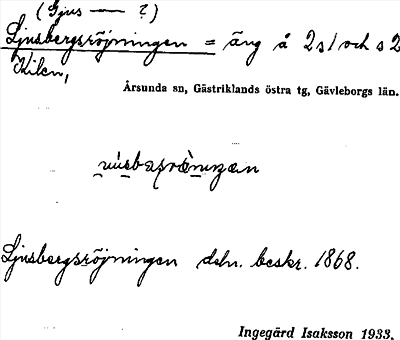 (Gjus — ?)
Ljusbergsröjningen = äng å 2s1 och s2
Kilen,
Årsunda sn, Gästriklands östra tg, Gävleborgs län.
Ljusbergsröjningen dehn. beskr. 1868.
Ingegärd Isaksson 1933.